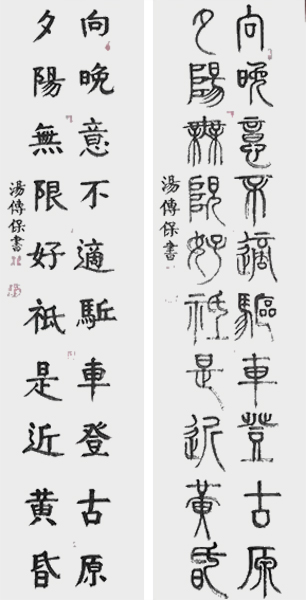 向晚意不適驅車登古原
夕陽無限好祇是近黃昏
湯傳保書
向晚意不適駈車登古原
夕陽無限好祇是近黃昏
湯傳保書